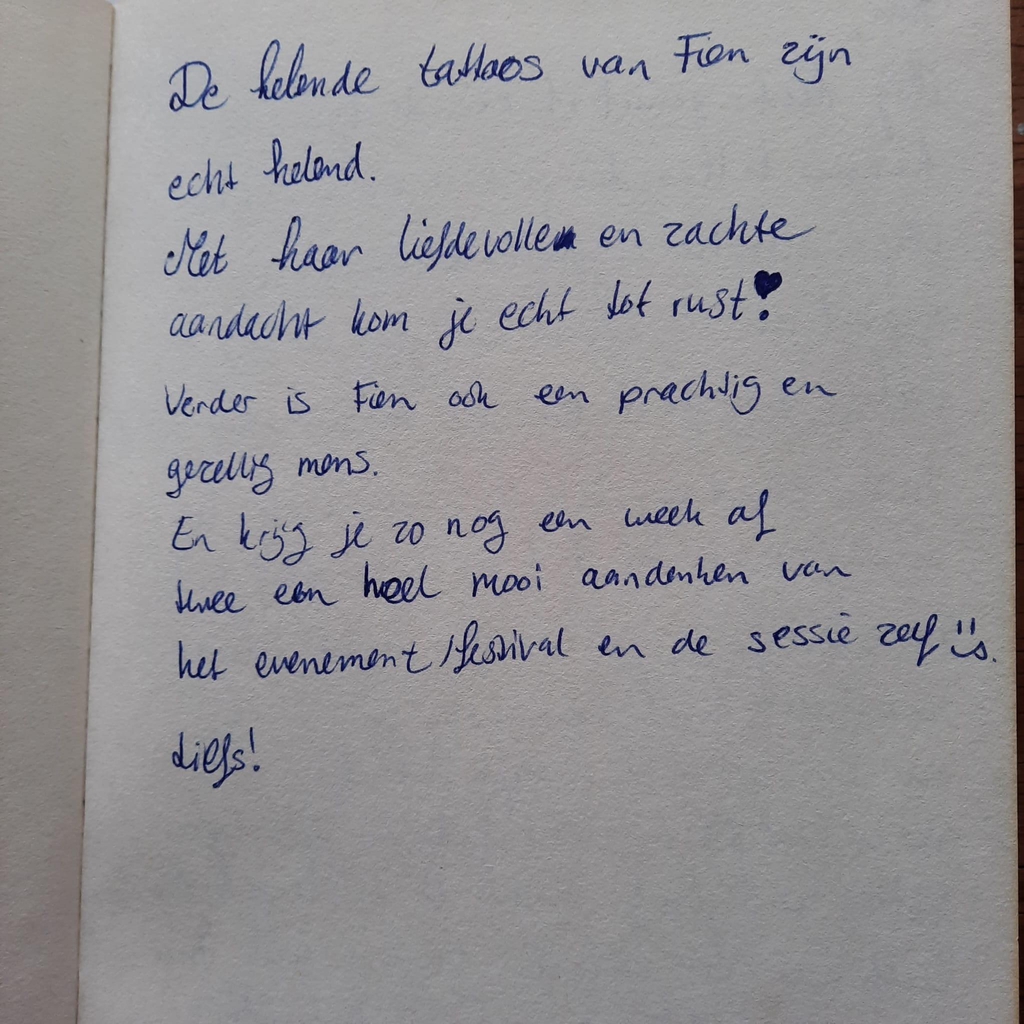 De helende tattoos van Fien zijn
echt helend.
Met haar liefdevolle en zachte
aandacht kom je echt tot rust!
Verder is Fien ook een prachtig en
gezellig mens.
En krijg je zo nog een week af
twee een heel mooi aandenken van
het evenement/festival en de sessie zelf
Liefs!